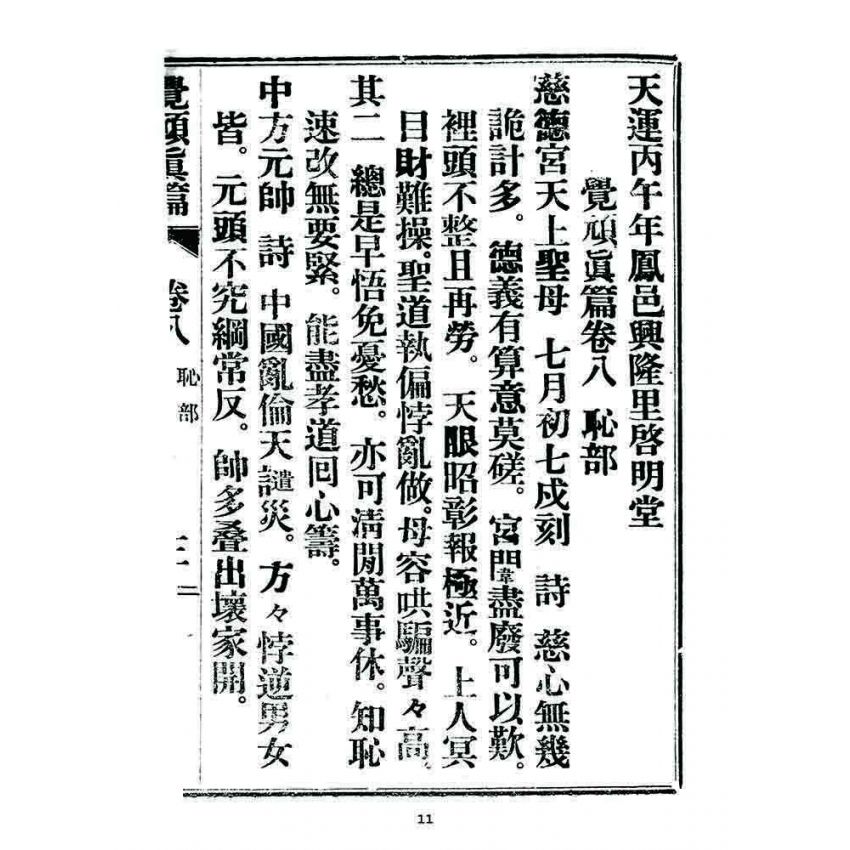 天運丙午年鳳邑興隆里啓明堂
覺頑眞篇卷八　恥部
慈德宮天上聖母　七月初七戍刻　詩　慈心無幾
詭計多。德義有算意莫磋。宮闈盡廢可以歎。
裡頭不整且再勞。天眼昭彰報極近。上人冥
目財難操。聖道執偏悖亂做。母容哄騙聲々高。
其二　總是早悟免憂愁。亦可淸閒萬事休。知恥
速改無要緊。能盡孝道囘心籌。
中方元帥　詩　中國亂倫天譴災。方々悖逆男女
皆。元頭不究綱常反。帥多叠出壞家開。
覺頑眞篇　卷八　恥部
11